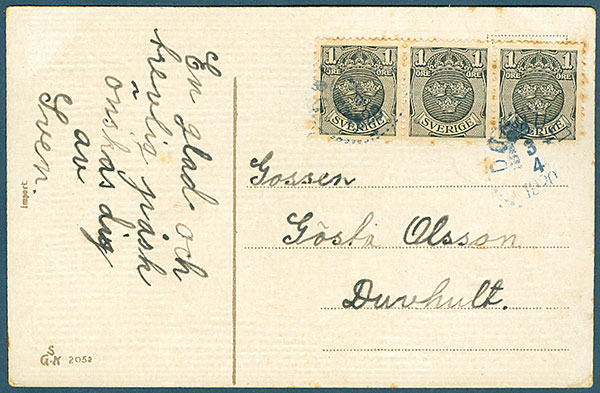 En glad och
trevlig påsk
önskas dig
av
Sven.
Import.
S
G.K 2052
1 1 1 1 1 1
ÖRE ÖRE ÖRE ÖRE ÖRE ÖRE
SVERIGE SVERIGE SVERIGE
3
4
Gossen
Gösta Olsson
Duvhult.